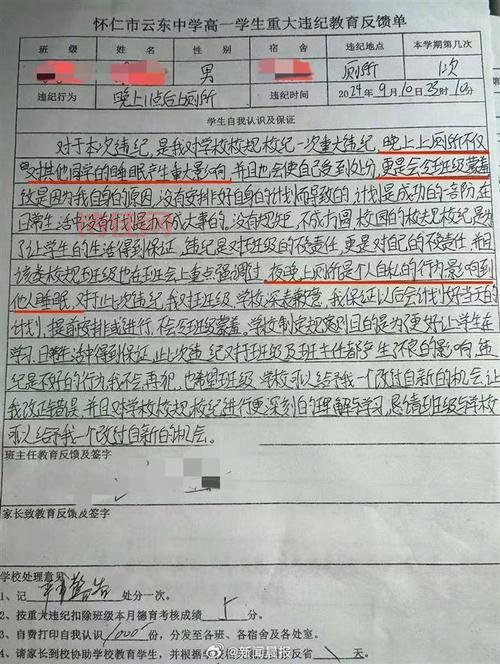 怀仁市云东中学高一学生重大违纪教育反馈单
班 级 姓 名 性别 宿 舍 违纪地点 本学期第几次
男 厕所 1次
违纪行为 晚上11点后上厕所 违纪时间 2024年9月10日23时10分
学生自我认识及保证
对于本次违纪,是我对学校校规校纪一次重大违纪,晚上上厕所不仅
对其他同学的睡眠产生重大影响,并且也会使自己受到处分,更是会令班级蒙羞
这是因为我自身的原因,没有安排好自身的计划而导致的,计划是成功的一部分在
日常生活中没有计划是成不成大事的,没有规矩,不成方圆,校园的校规校纪,是为
了让学生的生活得到保证,违纪是对班级的不负责任,更是对自己的不负责任,并且
该类校规班级也在班会上重点强调过,夜晚上厕所是个人自私的行为,影响到
他人睡眠,对于此次违纪,我对班级、学校深表歉意,我保证以后会计划好当天的
计划,提前安排或进行,不会令班级蒙羞,学校制定规章制目的是为更好让学生在
学习,日常生活中得到保证,此次违纪对于班级及班主任都产生不良的影响,违
纪是不好的行为,我不会再犯,也希望班级、学校可以给予我一个改过自新的机会,让
我改正错误,并且对学校校规校纪进行更深刻的理解与学习,恳请班级与学校
可以给予我一个改过自新的机会。
班主任教育反馈及签字
家长致教育反馈及签字
学校处理意见
1、记 严重警告 处分一次。
2、按重大违纪扣除班级本月德育考核成绩 5 分。
3、自费打印自我认识 1000 份,分发至各班、各宿舍及各处室。
4、请家长到校协助学校教育学生,并根据学校 反省 天。
@新闻晨报